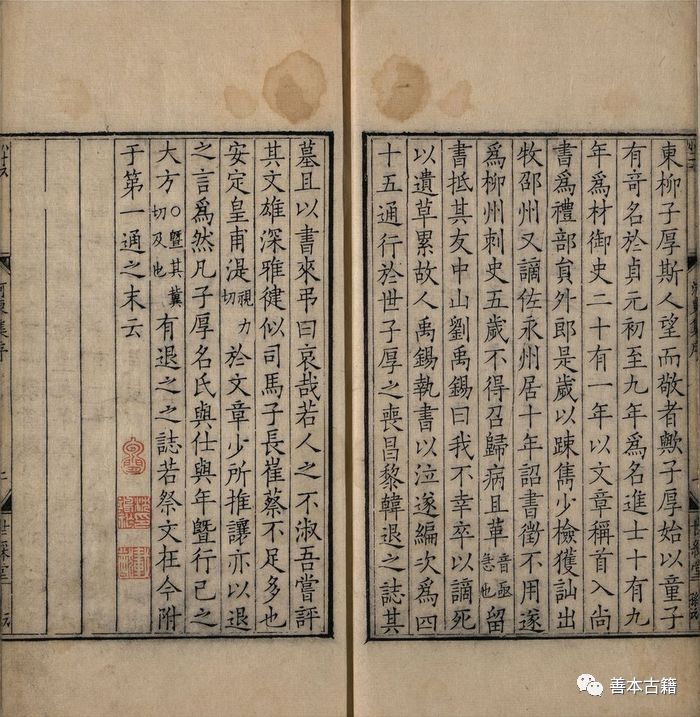 東柳子厚斯人望而敬者歟子厚始以童子
有奇名於貞元初至九年爲名進士十有九
年爲材御史二十有一年以文章稱首入尚
書爲禮部員外郎是歲以踈雋少檢獲訕出
牧邵州又謫佐永州居十年詔書徵不用遂
爲柳州刺史五歲不得召歸病且革音亟急也留
書抵其友中山劉禹錫曰我不幸卒以謫死
以遺草累故人禹錫執書以泣遂編次爲四
十五通行於世子厚之喪昌黎韓退之誌其
墓且以書來弔曰哀哉若人之不淑吾嘗評
其文雄深雅健似司馬子長崔蔡不足多也
安定皇甫湜視力切於文章少所推讓亦以退
之言爲然凡子厚名氏與仕與年曁行己之
大方○曁其冀切及也有退之之誌若祭文在今附
于第一通之末云
世綵堂
善本古籍